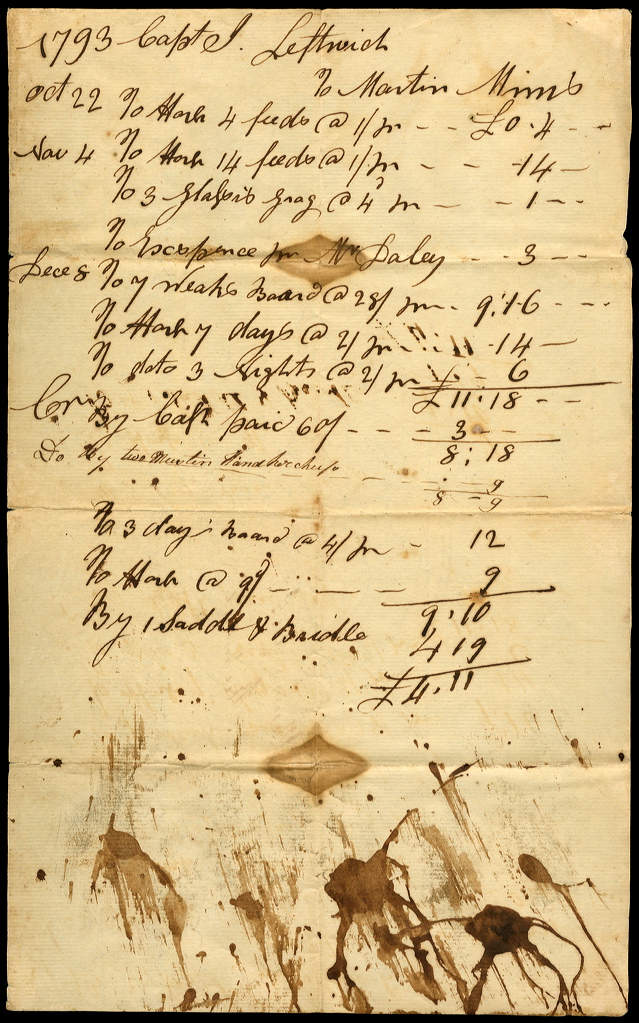 1793 Capt I. Leftwich
To Martin Mims
Oct 22 To Hors 4 feeds @ 1/ pr - - £0·4 - -
Nov 4 To Hors 14 feeds @ 1/ pr - - -14 -
To 3 Glasses grog @ 4d pr - - 1 - -
To Excspence pr Mr Daley - - 3 - -
Dece 8 To 7 weaks Board @ 28/ pr - - 9:16 - - -
To Hors 7 days @ 2/ pr - 14 -
To dito 3 nights @ 2/ pr - 6
£11·18 - -
By Cash paid 60/ - - - 3 - -
8:18
Do By two Muslin Handkerchefs
- 9
8 - 9
To 3 days Board @ 4/ pr - 12
To Hors @ 9/ - - - - 9
9·10
By 1 Saddle & Bridle 4 19
£4·11